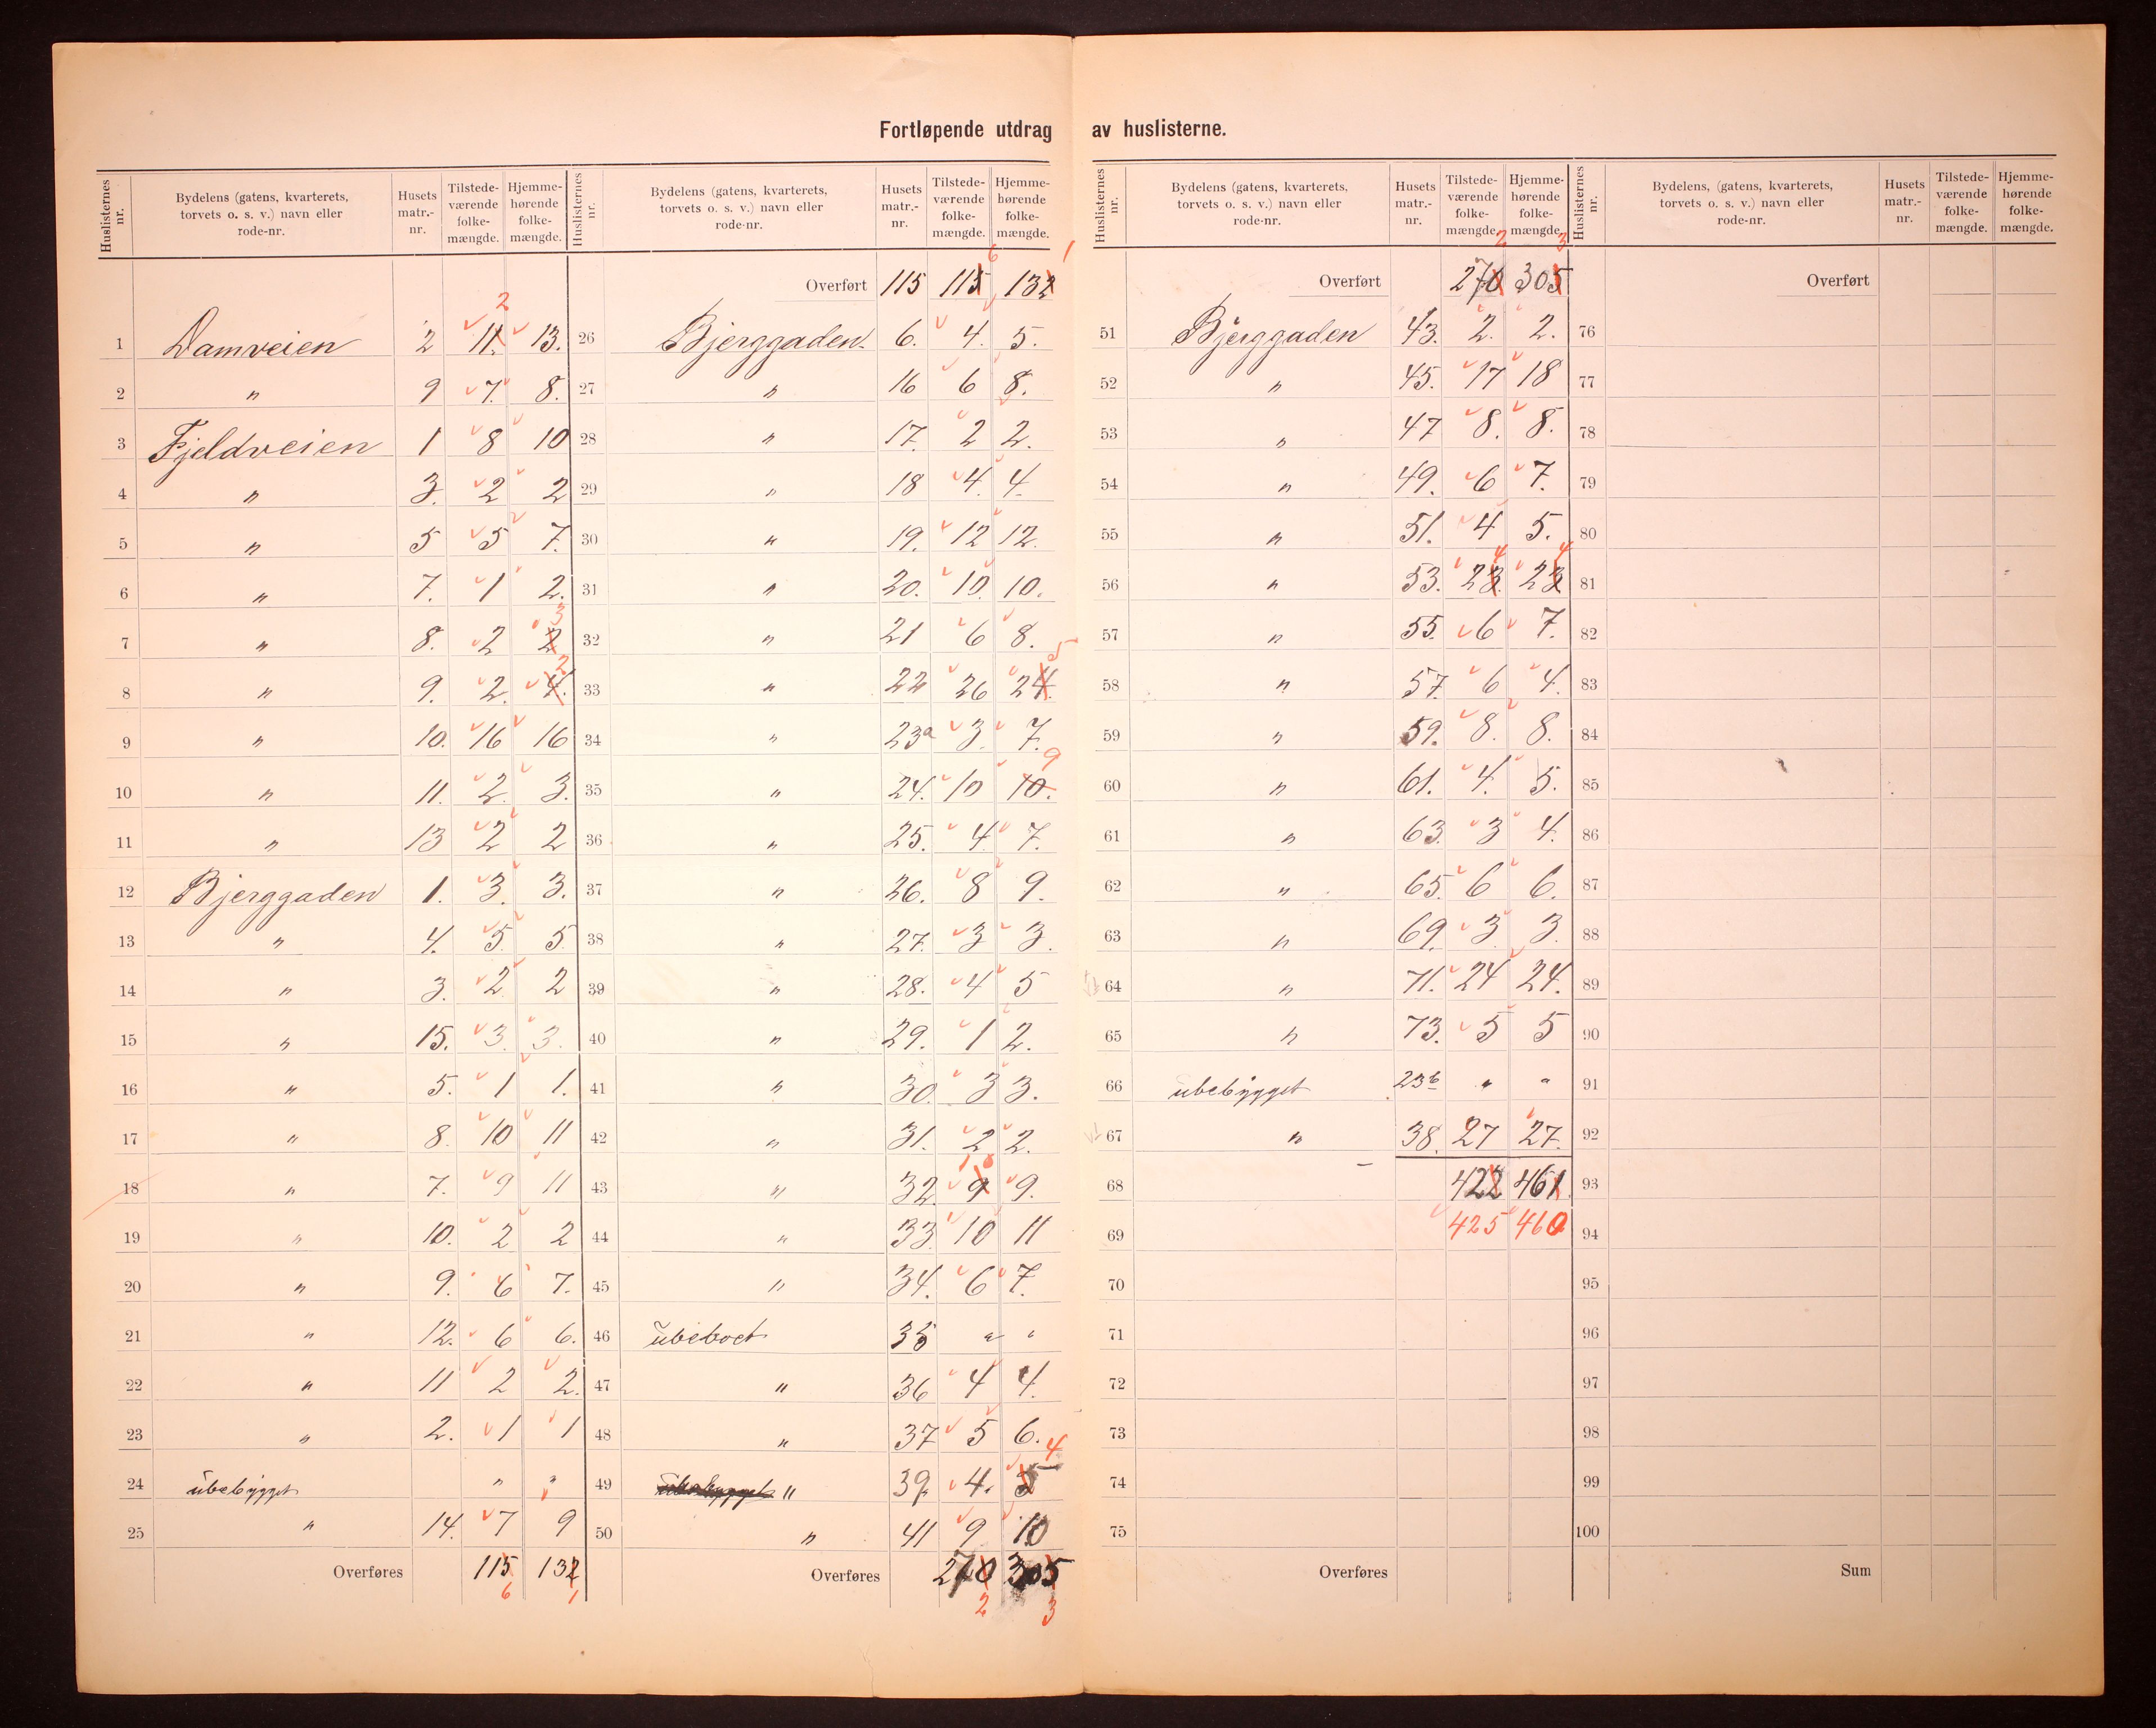 Fortløpende utdrag av huslisterne.
Huslisternes nr. | Bydelens (gatens, kvarterets, torvets o. s. v.) navn eller rode-nr. | Husets matr.-nr. | Tilstede-værende folke-mængde. | Hjemme-hørende folke-mængde.
1 Damveien 2 11. 2 13.
2 " 9 7. 8.
3 Fjeldveien 1 8 10
4 " 3. 2 2
5 " 5 5 7.
6 " 7. 1 2.
7 " 8. 2 2 3
8 " 9. 2. 4. 2
9 " 10. 16 16
10 " 11. 2. 3.
11 " 13 2 2
12 Bjerggaden 1. 3. 3.
13 " 4. 5. 5.
14 " 3. 2 2
15 " 15. 3. 3.
16 " 5. 1 1.
17 " 8. 10 11
18 " 7. 9 11
19 " 10. 2 2
20 " 9. 6 7.
21 " 12. 6 6.
22 " 11 2 2.
23 " 2. 1 1
24 ubebygget " "
25 " 14. 7 9
Overføres 115 6 132 1
Huslisternes nr. | Bydelens (gatens, kvarterets, torvets o. s. v.) navn eller rode-nr. | Husets matr.-nr. | Tilstede-værende folke-mængde. | Hjemme-hørende folke-mængde.
Overført 115 115 6 132 1
26 Bjerggaden. 6. 4. 5.
27 " 16 6 8.
28 " 17. 2 2.
29 " 18 4. 4.
30 " 19. 12 12.
31 " 20. 10. 10.
32 " 21 6 8.
33 " 22 26 24. 5
34 " 23a 3. 7.
35 " 24. 10 10. 9
36 " 25. 4. 7.
37 " 26. 8 9.
38 " 27. 3 3.
39 " 28. 4 5
40 " 29. 1 2.
41 " 30. 3 3.
42 " 31. 2 2.
43 " 32. 9 10 9.
44 " 33. 10 11
45 " 34. 6 7.
46 ubeboet 35 " "
47 " 36 4 4.
48 " 37 5 6.
49 ubebygget " 39. 4. 5 4
50 " 41 9 10
Overføres 270 2 305 3
Huslisternes nr. | Bydelens (gatens, kvarterets, torvets o. s. v.) navn eller rode-nr. | Husets matr.-nr. | Tilstede-værende folke-mængde. | Hjemme-hørende folke-mængde.
Overført 270 2 305 3
51 Bjerggaden 43. 2. 2.
52 " 45. 17 18
53 " 47 8. 8.
54 " 49. 6 7.
55 " 51. 4 5.
56 " 53. 23. 4 23 4
57 " 55. 6 7.
58 " 57. 6 4.
59 " 59. 8. 8.
60 " 61. 4. 5.
61 " 63. 3 4.
62 " 65. 6 6.
63 " 69. 3 3.
64 " 71. 24 24.
65 " 73. 5 5
66 ubebygget 23b " "
67 " 38. 27 27.
68 422 461
69 425 460
70
71
72
73
74
75
Overføres
Huslisternes nr. | Bydelens, (gatens, kvarterets, torvets o. s. v.) navn eller rode-nr. | Husets matr.-nr. | Tilstede-værende folke-mængde. | Hjemme-hørende folke-mængde.
Overført
76
77
78
79
80
81
82
83
84
85
86
87
88
89
90
91
92
93
94
95
96
97
98
99
100
Sum